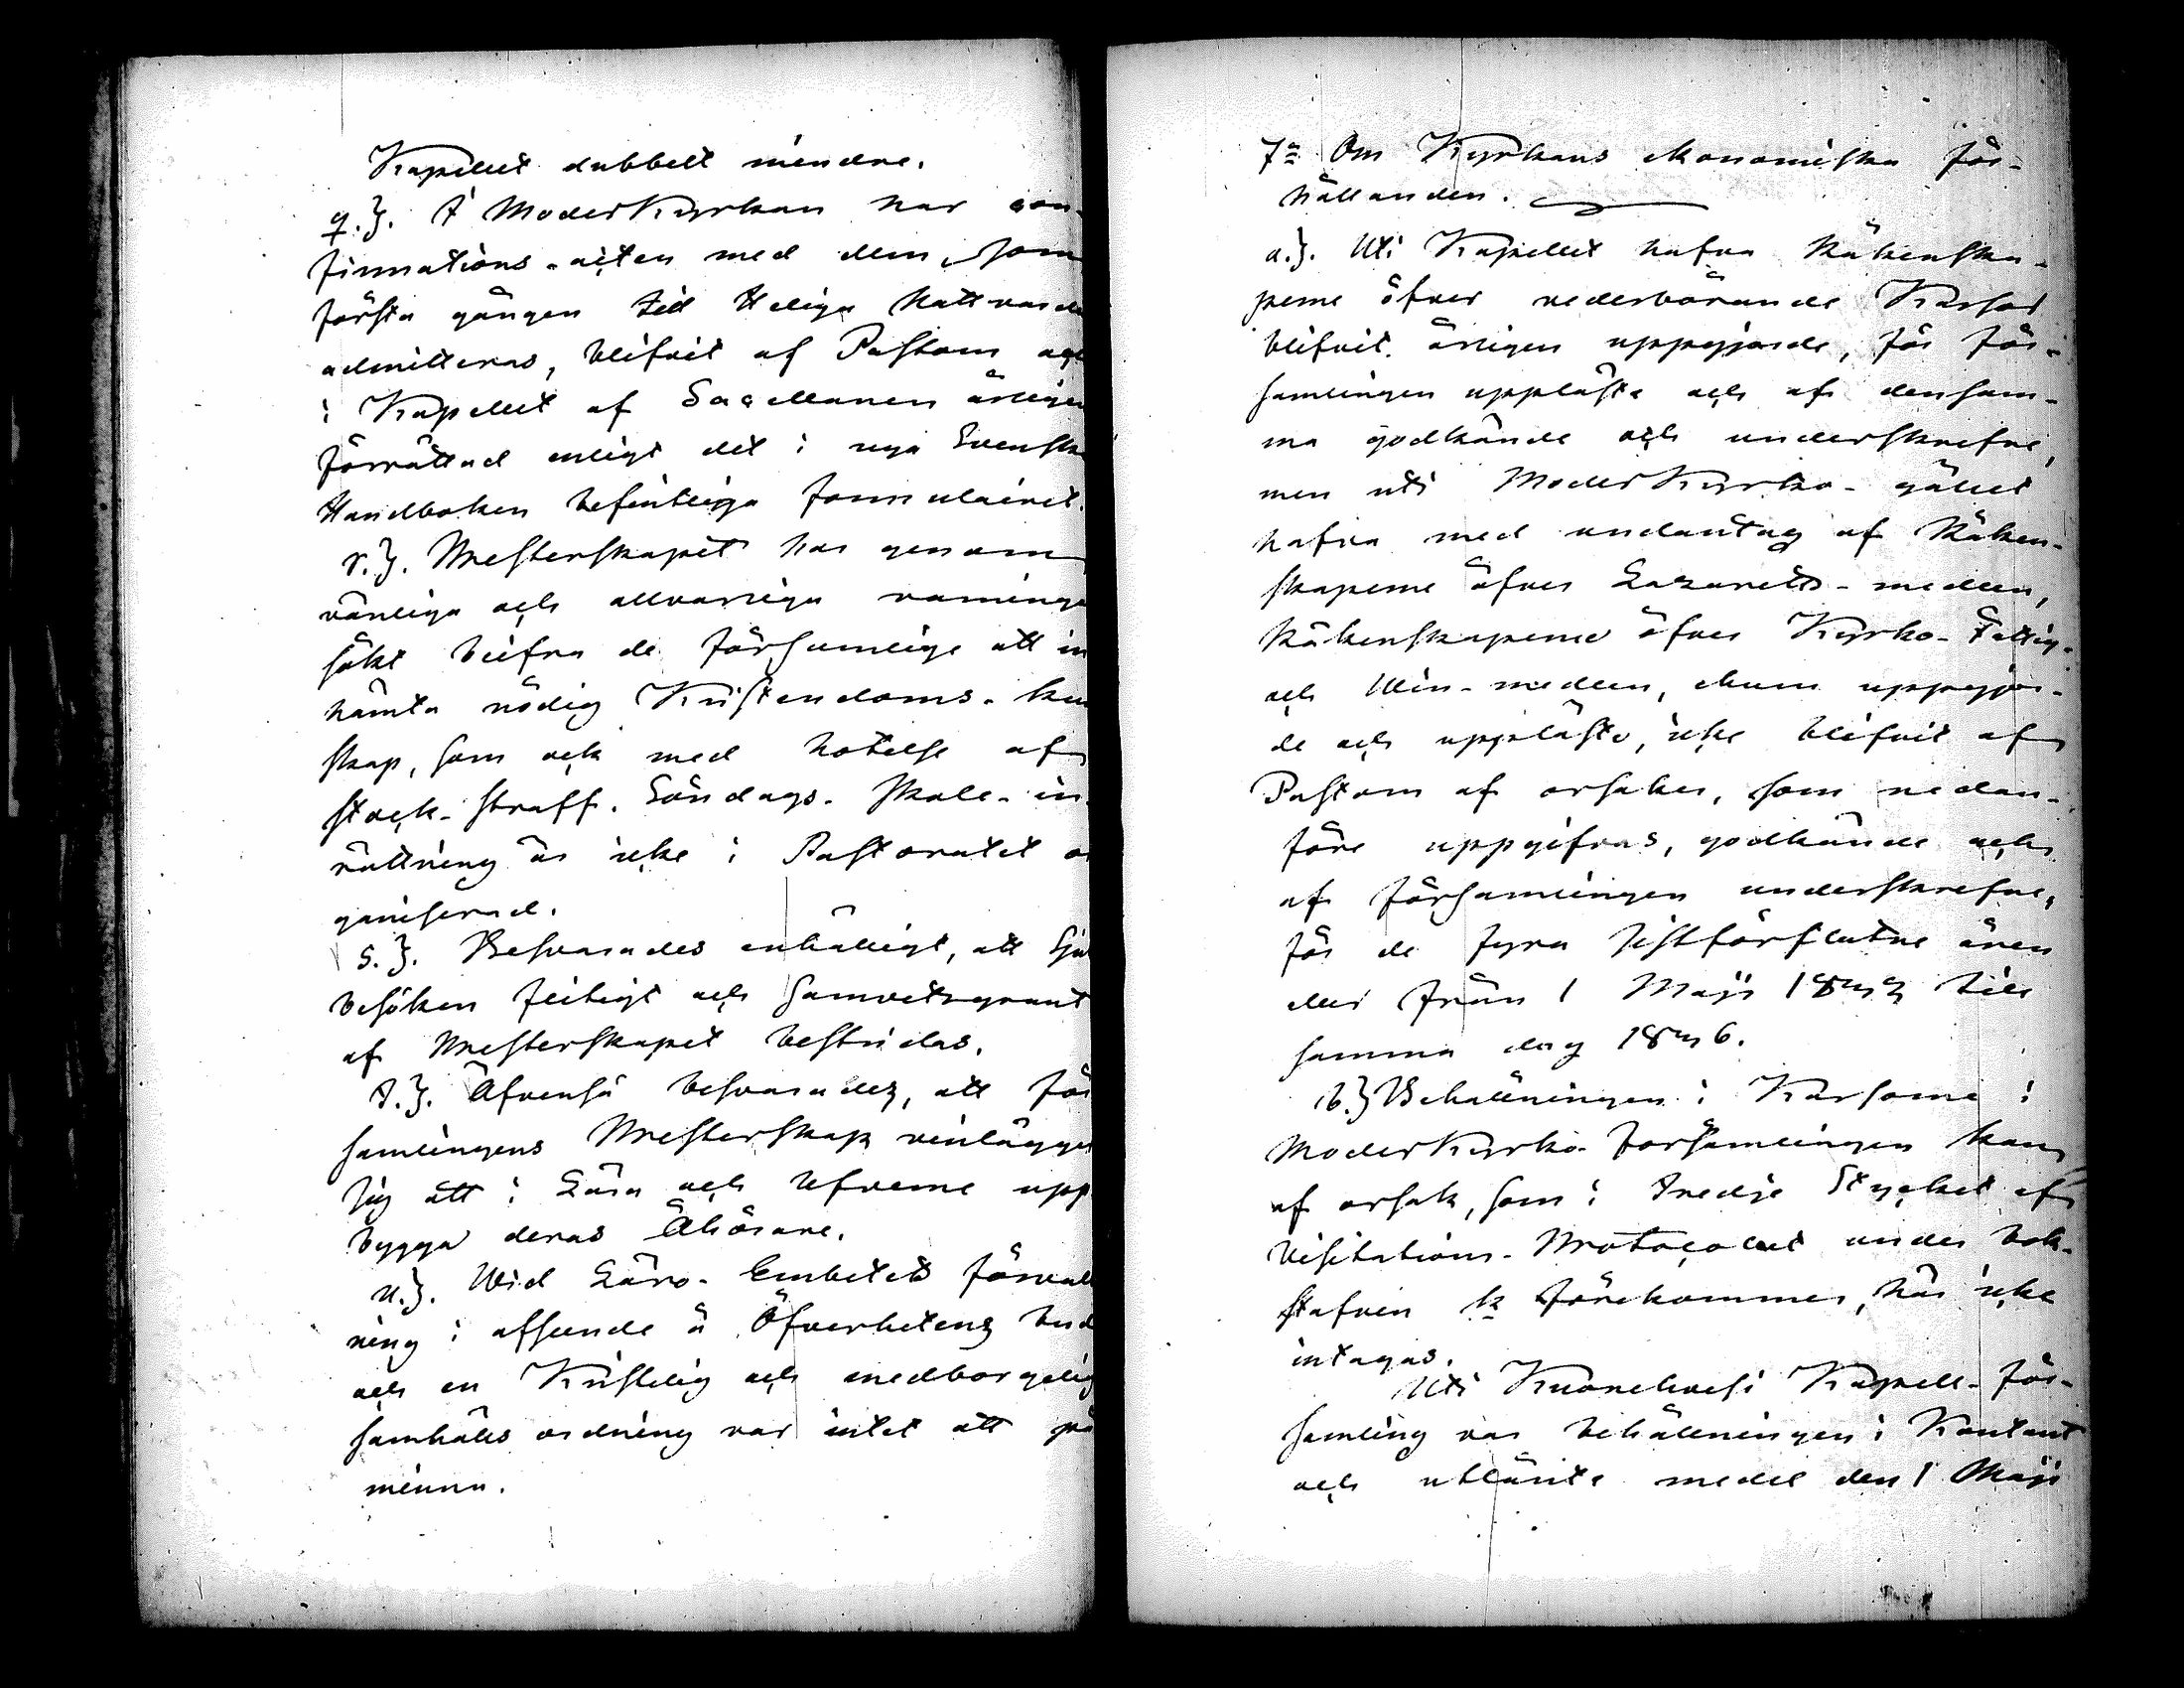 Kapellet dubbelt mindre.
q.). I ModerKyrkan har con-
firmations-acten med dem, som
första gången till Heliga Nattvarde
admitteras, blifvit af Pastorn och
i Kapellet af Sacellanen årligen
förrättad enligt det i nya Svenska
Handboken befintliga formulairet.
r.). Presterskapet har genom
vänliga och allvarliga varninga
sökt bifra de försumlige att in
hämta nödig Kristendoms-kun
skap, som ock med hotelse af
stock-straff. Söndags-Skole-in-
rättning är icke i Pastoratet or
ganiserad.
s.). Besvarades enhälligt, att Sju
besöken flitigt och samvetsgrant
af Presterskapet bestridas.
t.). Äfvenså besvarades, att för
samlingens Presterskap vinlägger
sig att i Lära och Lefverne upp
bygga deras Åhörare.
u.). Wid Läro-Embetets förvalt
ning i afseende å Öfverhetens bud
och en Kristelig och medborgelig
samhälls ordning var intet att på
minna.
7º Om Kyrkans ekonomiska för-
hållanden.
a.). Uti Kapellet hafva Räkenska-
perne öfver vederbörande Kassor
blifvit årligen uppgjorde, för för-
samlingen uppläste och af densam-
ma godkände och underskrefne,
men uti ModerKyrko-gället
hafva med undantag af Räken-
skaperne öfver Lazaretts-medlen,
Räkenskaperne öfver Kyrko-Fattig-
och Win-medlen, ehuru uppgjor-
de och uppläste, icke blifvit af
Pastorn af orsaker, som nedan-
före uppgifvas, godkände och
af församlingen underskrefne,
för de fyra sistförflutne åren
eller från 1 Maji 1842 till
samma dag 1846.
b.) Behållningen i Kassorne i
ModerKyrko-församlingen kan
af orsak, som i tredje Stycket af
Visitations-Protocollet under bok-
stafven k förekommer, här icke
intagas.
Uti Kuorehvesi Kapell-För-
samling var behållningen i Kontant
och utlånte medel den 1 Maji